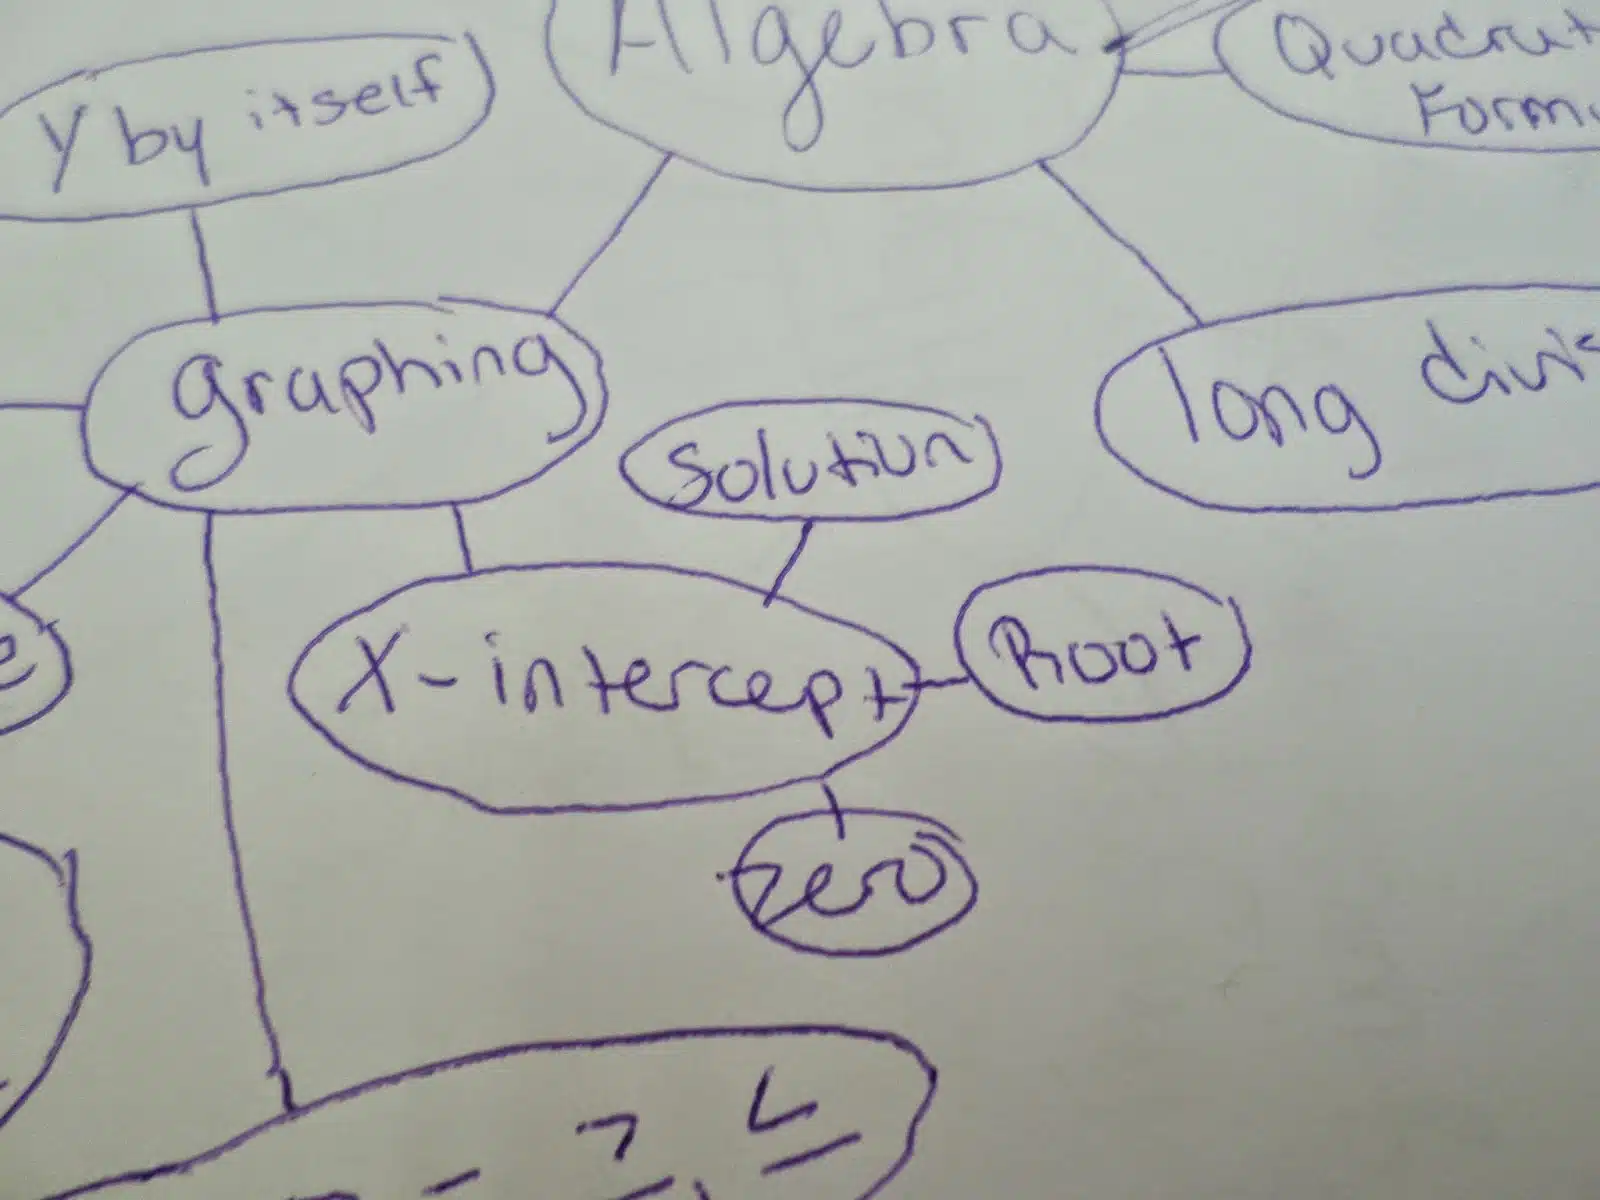 Algebra
Quadrat
Form
Y by itself
graphing
long divis
Solution
X-intercept
Root
zero